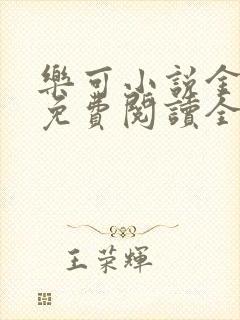 樂可小說全
免費閱讀全
王荣輝